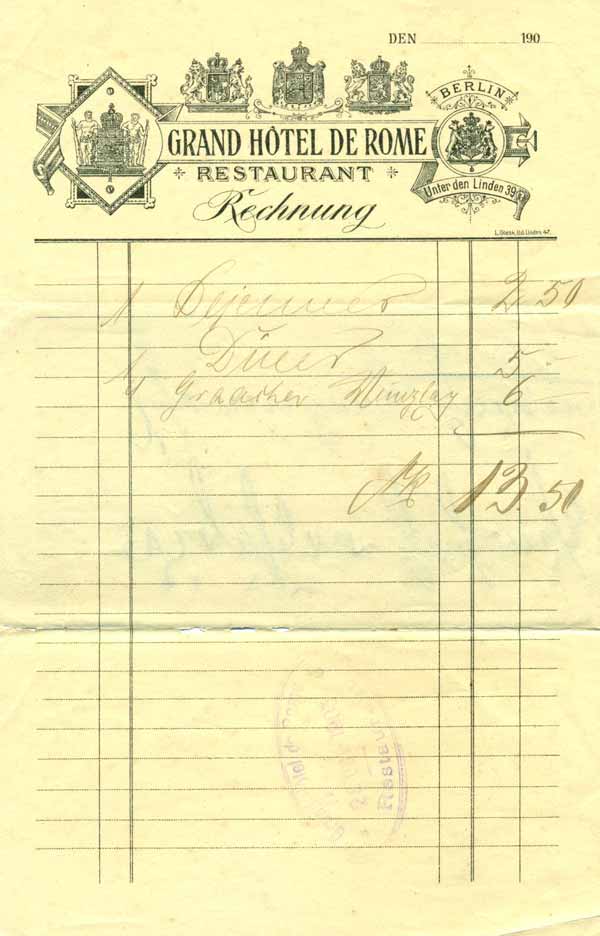 DEN 190
BERLIN
GRAND HÔTEL DE ROME
RESTAURANT
Unter den Linden 39
Rechnung
1 Dejeuner 2 50
Diner 5 -
1/1 Graacher Münzlay 6 -
Mk 13.50
Restaur